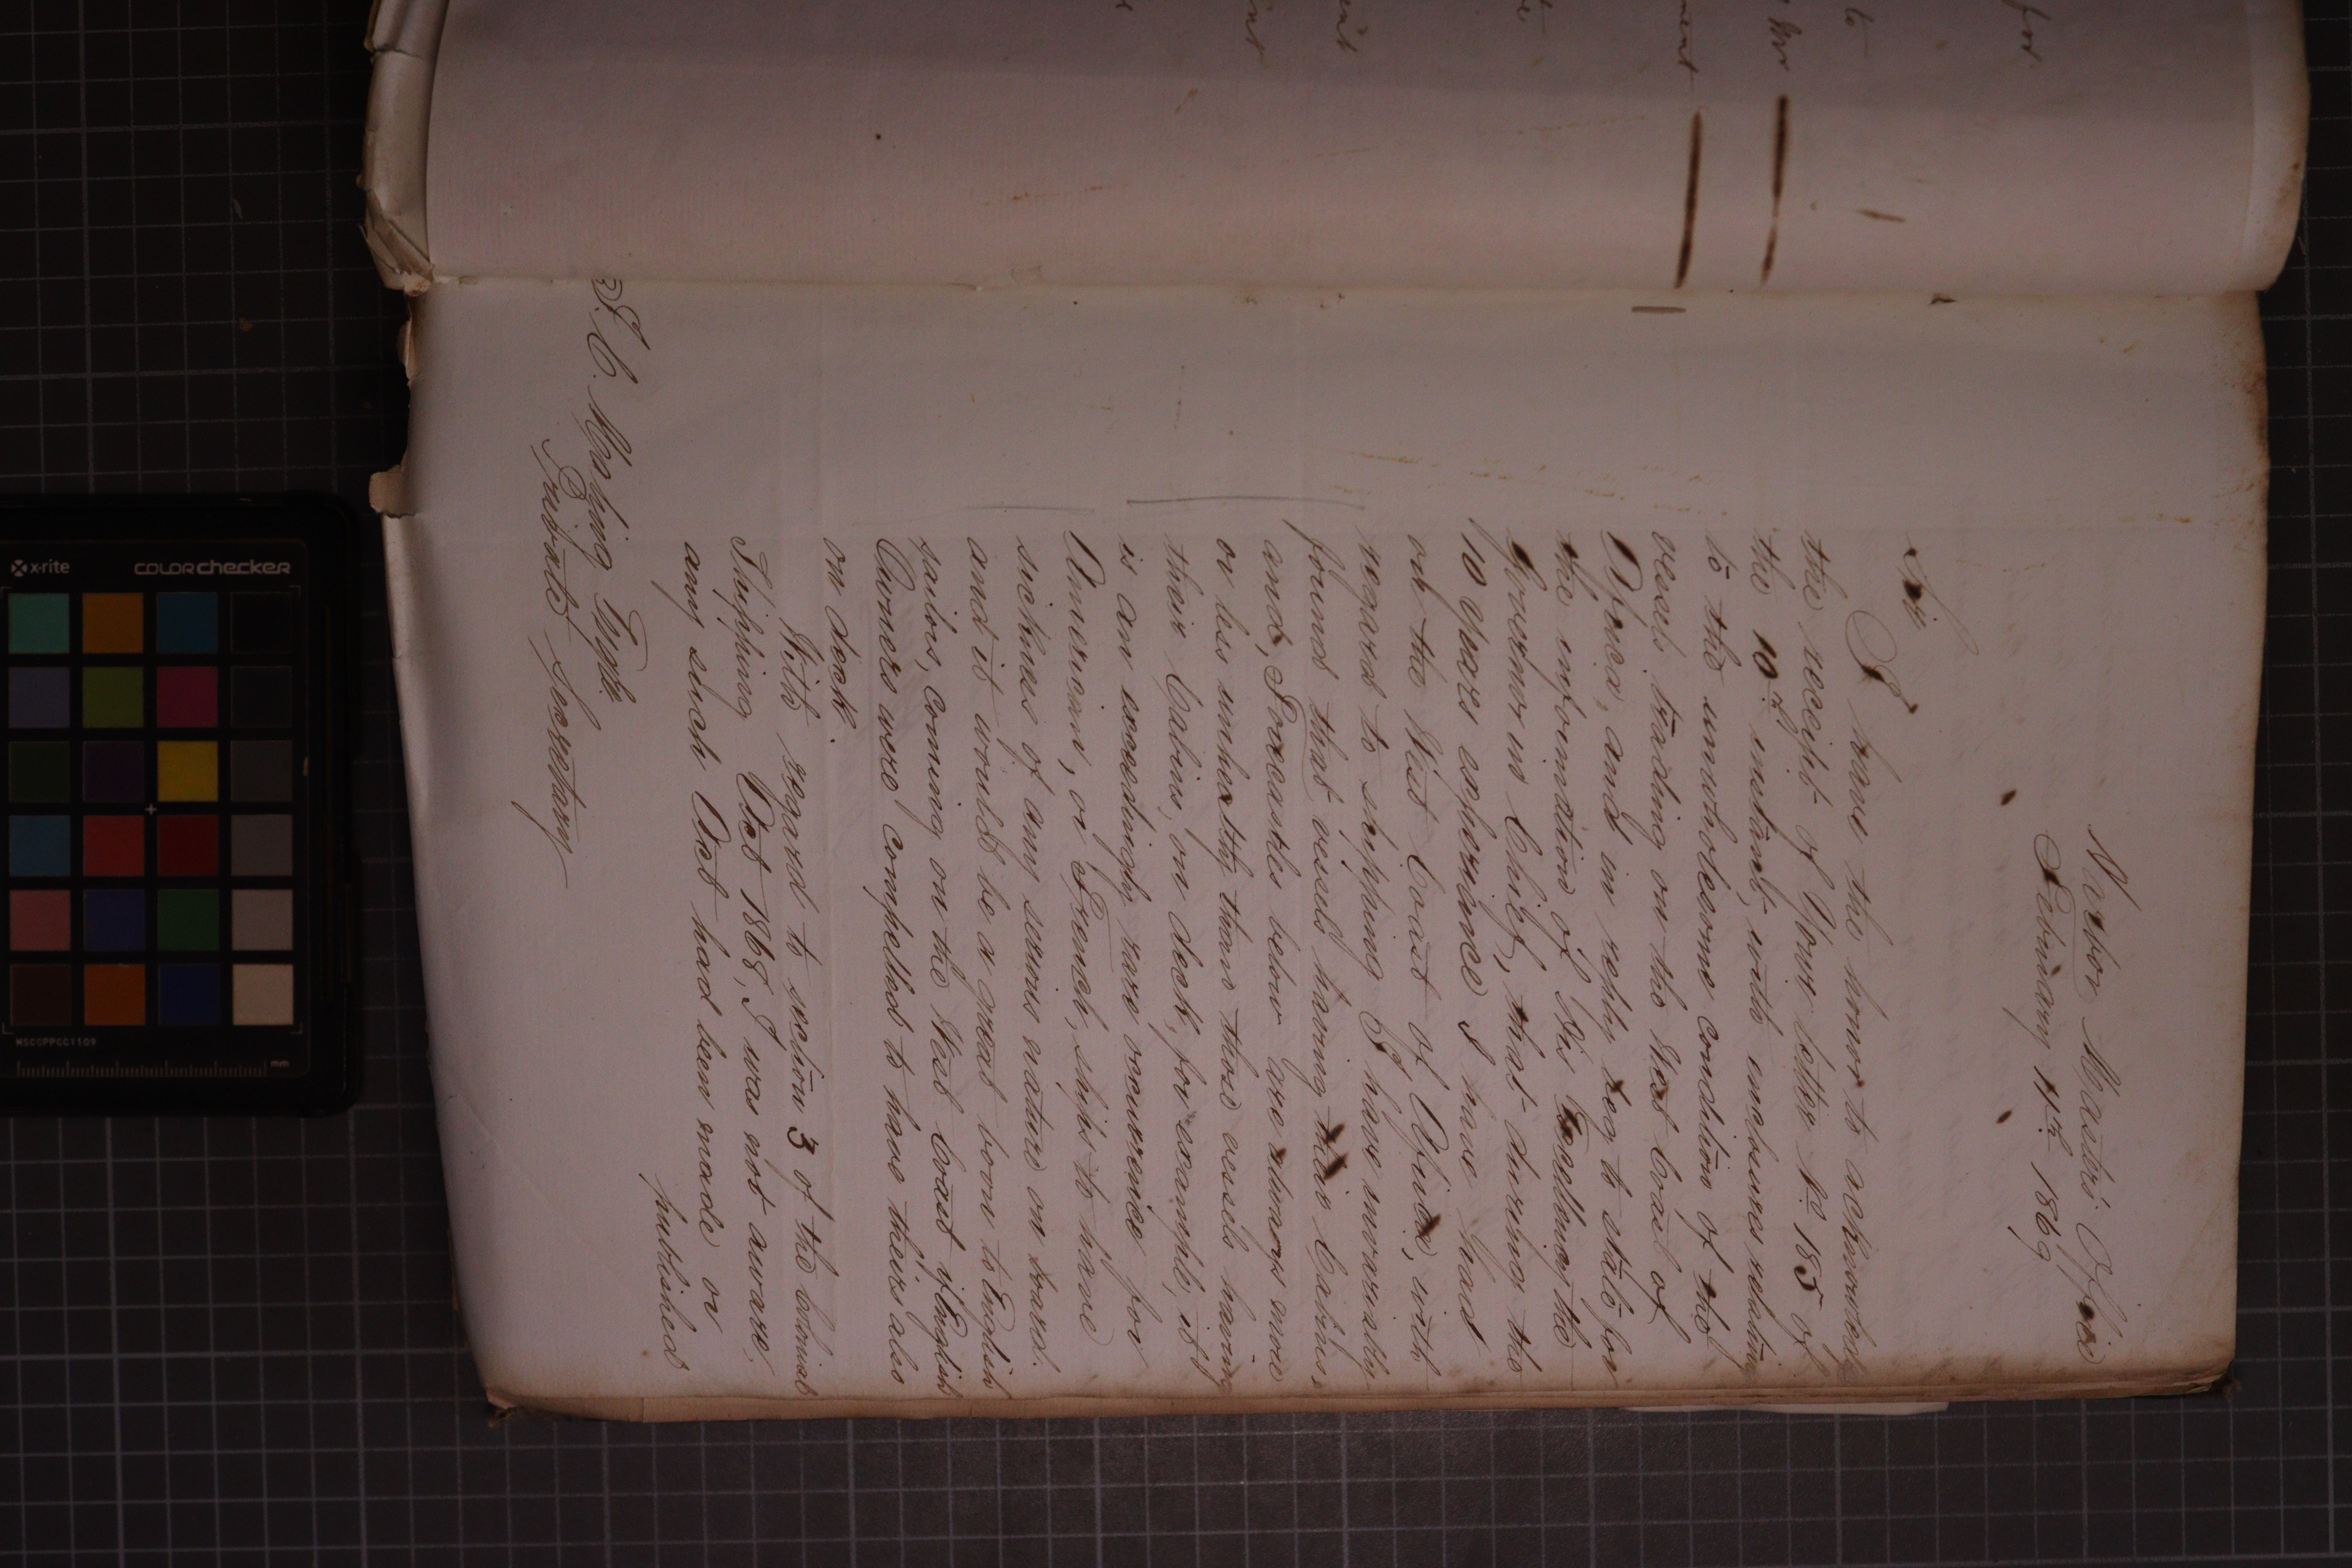 Harbor Masters Office
February 11th 1869
Sir
I have the honor to acknowledge
the receipt of Your letter No 185 of
the 10th instant, with enclosures relating
to the unwholesome condition of the
vessels trading on the West Coast of
Africa, and in reply beg to state for
the information of His Excellency the
Governor in Chief, that during the
10 years experience I have had
on the West Coast of Africa, with
regard to shipping I have invariably
found that vessels having their Cabins,
and, Forecastles below are always more
or less unhealthy than those vessels having
their Cabins, on deck, for example, it
is an exceedingly rare occurrence for
American, or French, ships to have
sickness of any serious nature on board.
and it would be a great boon to English
sailors, coming on the West Coast if English
Owners were compelled to have theirs also
on deck.
With regard to section 3 of the Colonial
Shipping Act 1868, I was not aware,
any such Act had been made or
published
Private Secretary
for
to
ment
x-rite
colorchecker
MSCCPPCC1109
mm